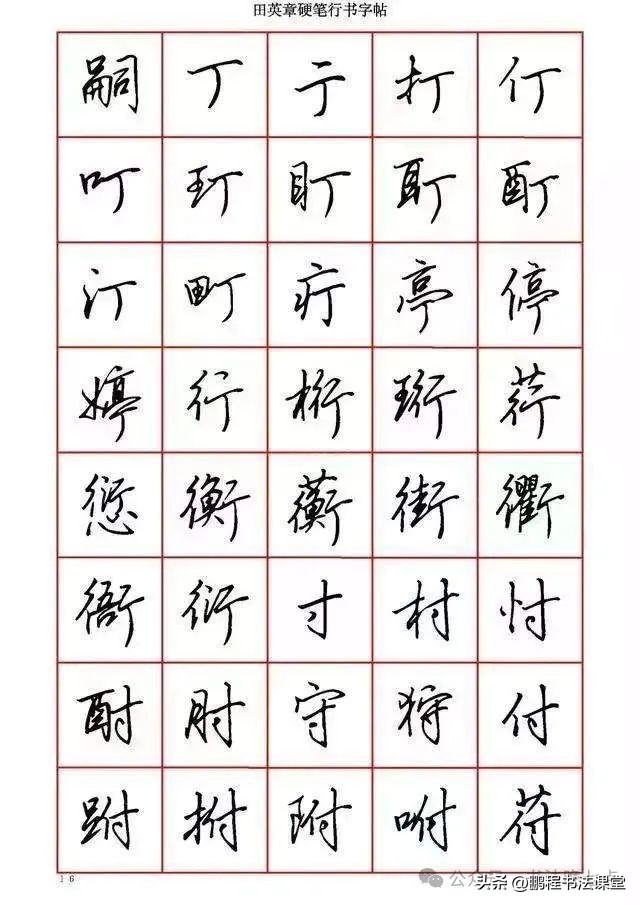 田英章硬笔行书字帖
嗣 丁 亍 打 仃
叮 玎 盯 耵 酊
汀 町 疔 亭 停
婷 行 桁 珩 荇
愆 衡 蘅 街 衢
衙 衍 寸 村 忖
酎 肘 守 狩 付
跗 拊 附 咐 苻
16
头条 @鹏程书法课堂